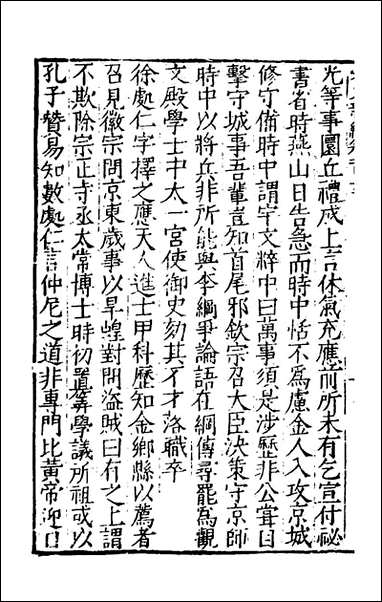 光等事園丘禮成上言休氣充應前所未有乞宣付祕
書省時燕山日告急而時中恬不為慮金人入攻京城
修守備時中謂宇文粹中曰萬事須是涉歷非公嘗目
擊守城事吾輩豈知首尾邪欽宗召大臣決策守京師
時中以將兵非所能與李綱爭論語在綱傳尋罷為觀
文殿學士中太一宮使御史劾其不才落職卒
徐處仁字擇之應天人進士甲科歷知金鄉縣以薦者
召見徽宗問京東歲事以旱蝗對問盜賊曰有之上謂
不欺除宗正寺丞太常博士時初置筭學議所祖或以
孔子贊易知數處仁言仲尼之道非專門比黃帝迎日